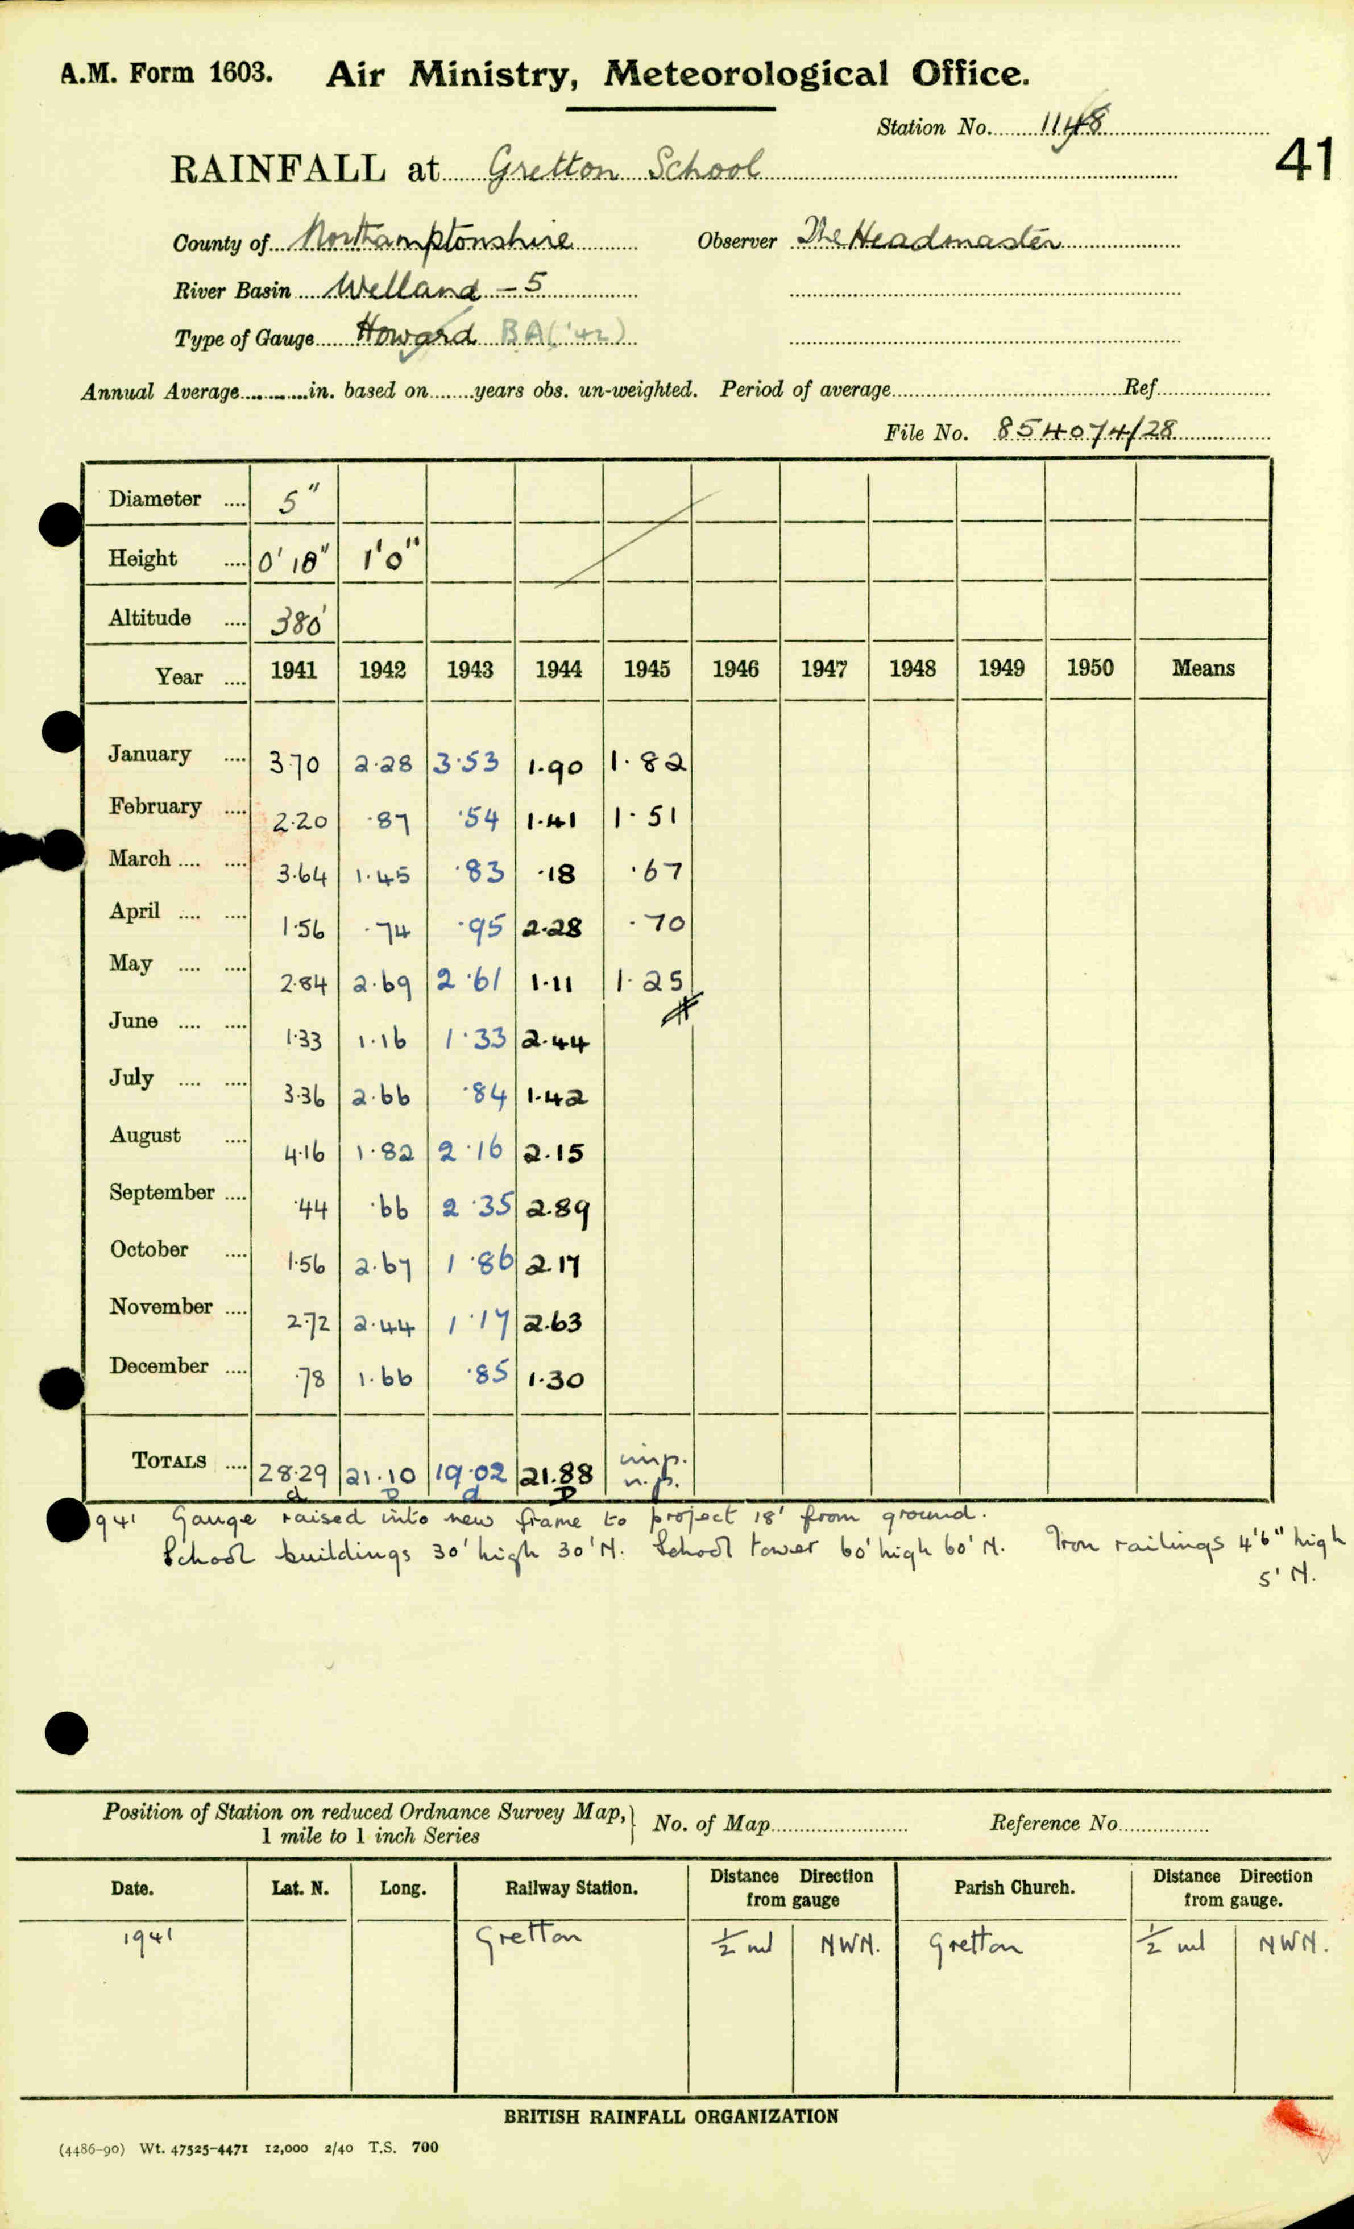 A.M. Form 1603. Air Ministry, Meteorological Office.
Station No. 1148
41
RAINFALL at Gretton School
County of Northamptonshire Observer The Headmaster
River Basin Welland - 5
Type of Gauge Howard BA ('42)
Annual Average in. based on years obs. un-weighted. Period of average Ref
File No. 854074/28
Diameter 5"
Height 0' 18" 1'0"
Altitude 380'
Year 1941 1942 1943 1944 1945 1946 1947 1948 1949 1950 Means
January 3.70 2.28 3.53 1.90 1.82
February 2.20 .87 .54 1.41 1.51
March 3.64 1.45 .83 .18 .67
April 1.56 .74 .95 2.28 .70
May 2.84 2.69 2.61 1.11 1.25
June 1.33 1.16 1.33 2.44
July 3.36 2.66 .84 1.42
August 4.16 1.82 2.16 2.15
September .44 .66 2.35 2.89
October 1.56 2.67 1.86 2.17
November 2.72 2.44 1.17 2.63
December .78 1.66 .85 1.30
TOTALS 28.29 21.10 19.02 21.88 imp. n.p.
d D d D
1941 Gauge raised into new frame to project 18' from ground.
School buildings 30' high 30' N. School tower 60' high 60' N. Iron railings 4'6" high
5' N.
Position of Station on reduced Ordnance Survey Map, 1 mile to 1 inch Series No. of Map Reference No
Date. Lat. N. Long. Railway Station. Distance Direction from gauge Parish Church. Distance Direction from gauge.
1941 Gretton 1/2 ml NWN. Gretton 1/2 ml NWN.
BRITISH RAINFALL ORGANIZATION
(4486-90) Wt. 47525-4471 12,000 2/40 T.S. 700